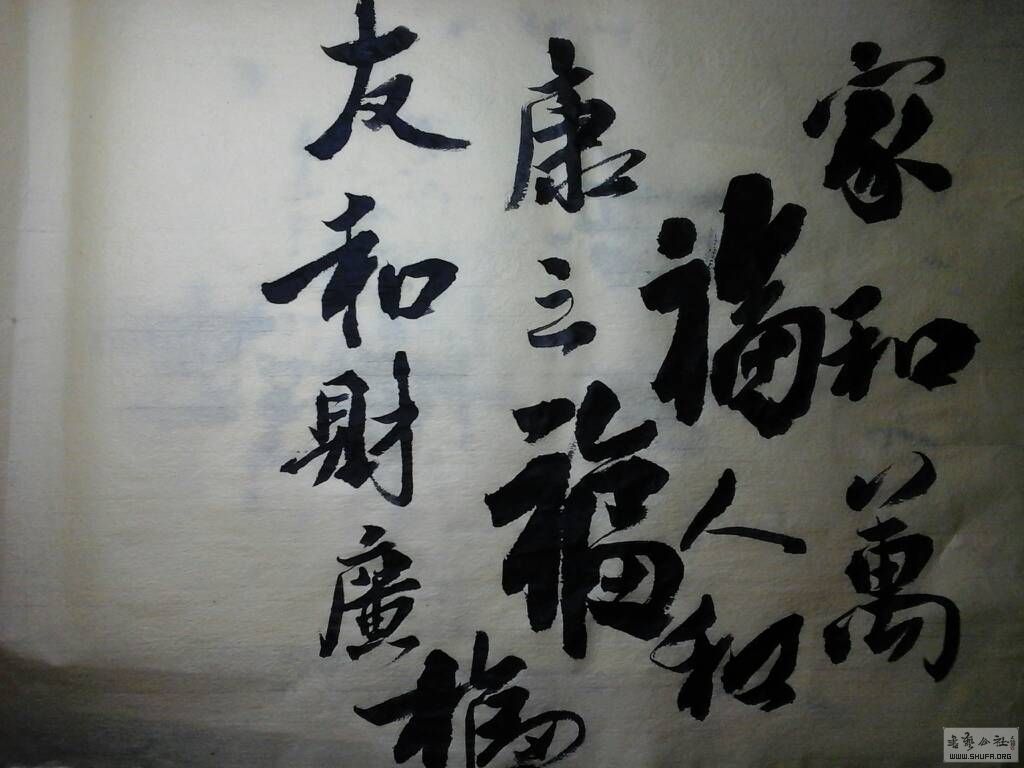 家和萬
福人和
康三福
友和財廣福
書藝公社
WWW.SHUFA.ORG